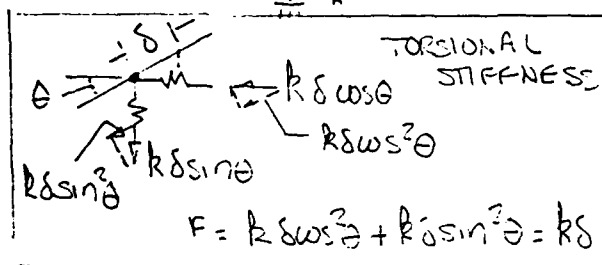 δ
TORSIONAL
STIFFNESS
θ
kδcosθ
kδcos²θ
kδsinθ
kδsin²θ
F = kδcos²θ + kδsin²θ = kδ